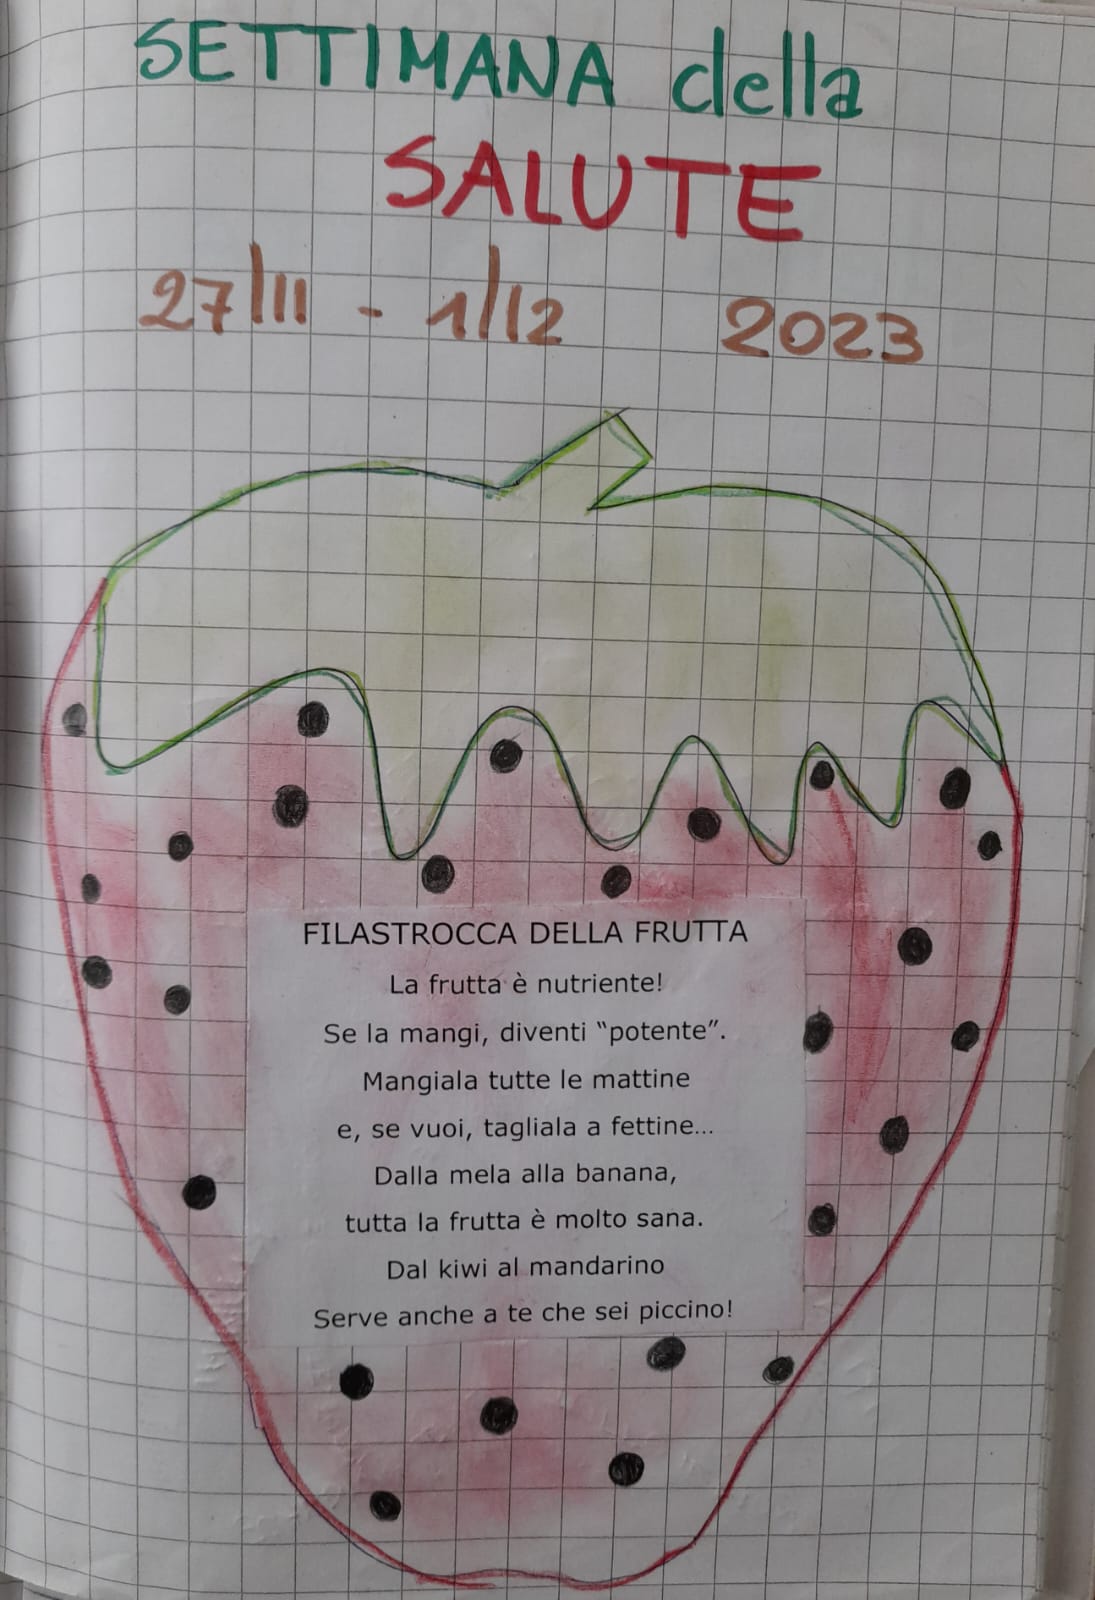 SETTIMANA della
SALUTE
27/11 - 1/12 2023
FILASTROCCA DELLA FRUTTA
La frutta è nutriente!
Se la mangi, diventi “potente”.
Mangiala tutte le mattine
e, se vuoi, tagliala a fettine...
Dalla mela alla banana,
tutta la frutta è molto sana.
Dal kiwi al mandarino
Serve anche a te che sei piccino!